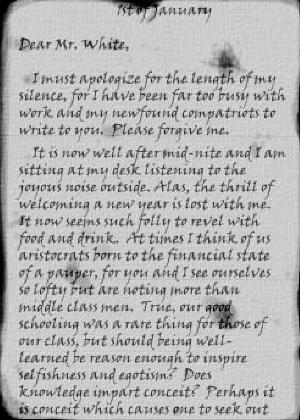 1st of January
Dear Mr. White,
I must apologize for the length of my
silence, for I have been far too busy with
work and my newfound compatriots to
write to you. Please forgive me.
It is now well after mid-nite and I am
sitting at my desk listening to the
joyous noise outside. Alas, the thrill of
welcoming a new year is lost with me.
It now seems such folly to revel with
food and drink. At times I think of us
aristocrats born to the financial state
of a pauper, for you and I see ourselves
so lofty but are noting more than
middle class men. True, our good
schooling was a rare thing for those of
our class, but should being well-
learned be reason enough to inspire
selfishness and egotism? Does
knowledge impart conceit? Perhaps it
is conceit which causes one to seek out